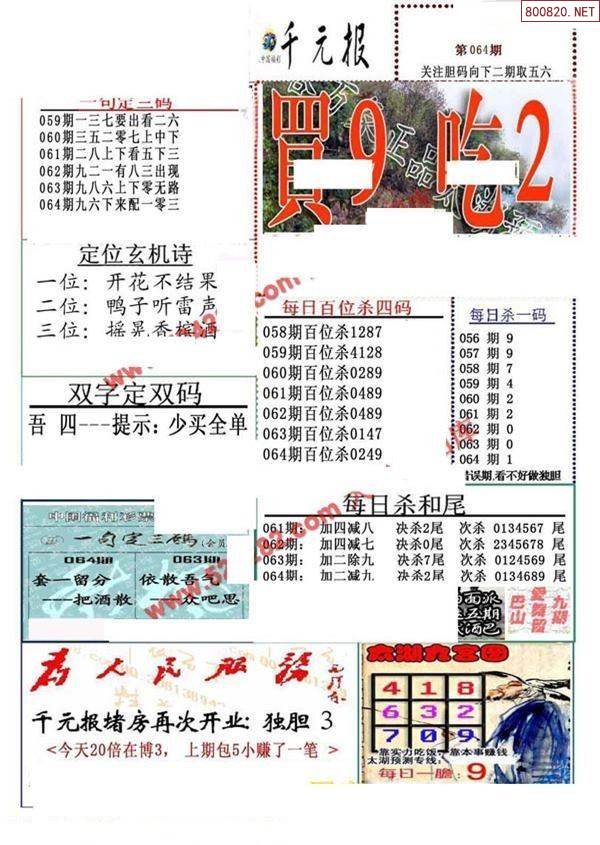 800820.NET
千元报
第064期
关注胆码向下二期取五六
買9 吃2
一句定三码
059期一三七要出看二六
060期三五二零七上中下
061期二八上下看五下三
062期九二一有八三出现
063期九八六上下零无路
064期九六下来配一零三
定位玄机诗
一位: 开花不结果
二位: 鸭子听雷声
三位: 摇晃香槟酒
双字定双码
吾 四---提示: 少买全单
每日百位杀四码
058期百位杀1287
059期百位杀4128
060期百位杀0289
061期百位杀0489
062期百位杀0489
063期百位杀0147
064期百位杀0249
每日杀一码
056 期 9
057 期 9
058 期 7
059 期 4
060 期 2
061 期 2
062 期 0
063 期 0
064 期 1
错误期,看不好做独胆
每日杀和尾
061期: 加四减八 决杀2尾 次杀 0134567 尾
062期: 加四减七 决杀0尾 次杀 2345678 尾
063期: 加二除九 决杀7尾 次杀 0124569 尾
064期: 加二减九 决杀2尾 次杀 0134689 尾
中国福利彩票
一句定三码(会员
064期 063期
套—留分 依散吾气
——把酒散 ——众吧思
九湖
爱舞留
巴山
为人民服务
千元报堵房再次开业: 独胆 3
<今天20倍在博3, 上期包5小赚了一笔 >
太湖九宫图
4 1 8
6 3 2
7 0 9
靠实力吃饭, 靠本事赚钱
太湖预测专线:
每日一胆: 9